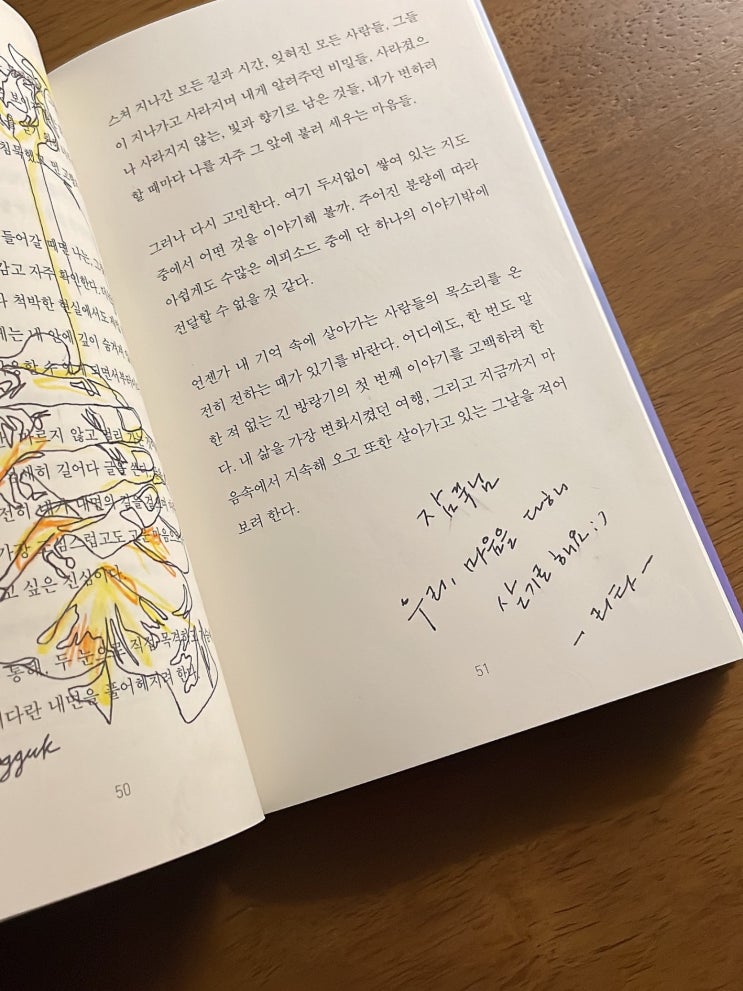 침묵했
들어갈 때면 나는
감고 자주 확인한다.
척박한 현실에서도
내 안에 깊이
수 있게 되면서부터
마르지 않고
길어다 글을
내면의
가장
고 싶은 진심이다.
통해 두 눈으로 직접 목격하고
커다란 내면을 풀어헤치려 한다.
gguk
50
스쳐 지나간 모든 길과 시간, 잊혀진 모든 사람들, 그들
이 지나가고 사라지며 내게 알려주던 비밀들, 사라졌으
나 사라지지 않는, 빛과 향기로 남은 것들, 내가 변하려
할 때마다 나를 자주 그 앞에 불러 세우는 마음들.
그러나 다시 고민한다. 여기 두서없이 쌓여 있는 지도
중에서 어떤 것을 이야기해 볼까. 주어진 분량에 따라
아쉽게도 수많은 에피소드 중에 단 하나의 이야기밖에
전달할 수 없을 것 같다.
언젠가 내 기억 속에 살아가는 사람들의 목소리를 온
전히 전하는 때가 있기를 바란다. 어디에도, 한 번도 말
한 적 없는 긴 방랑기의 첫 번째 이야기를 고백하려 한
다. 내 삶을 가장 변화시켰던 여행, 그리고 지금까지 마
음속에서 지속해 오고 또한 살아가고 있는 그날을 적어
보려 한다.
잠꾹님
우리, 마음을 다해
살기로 해요 :)
- 리타 -
51